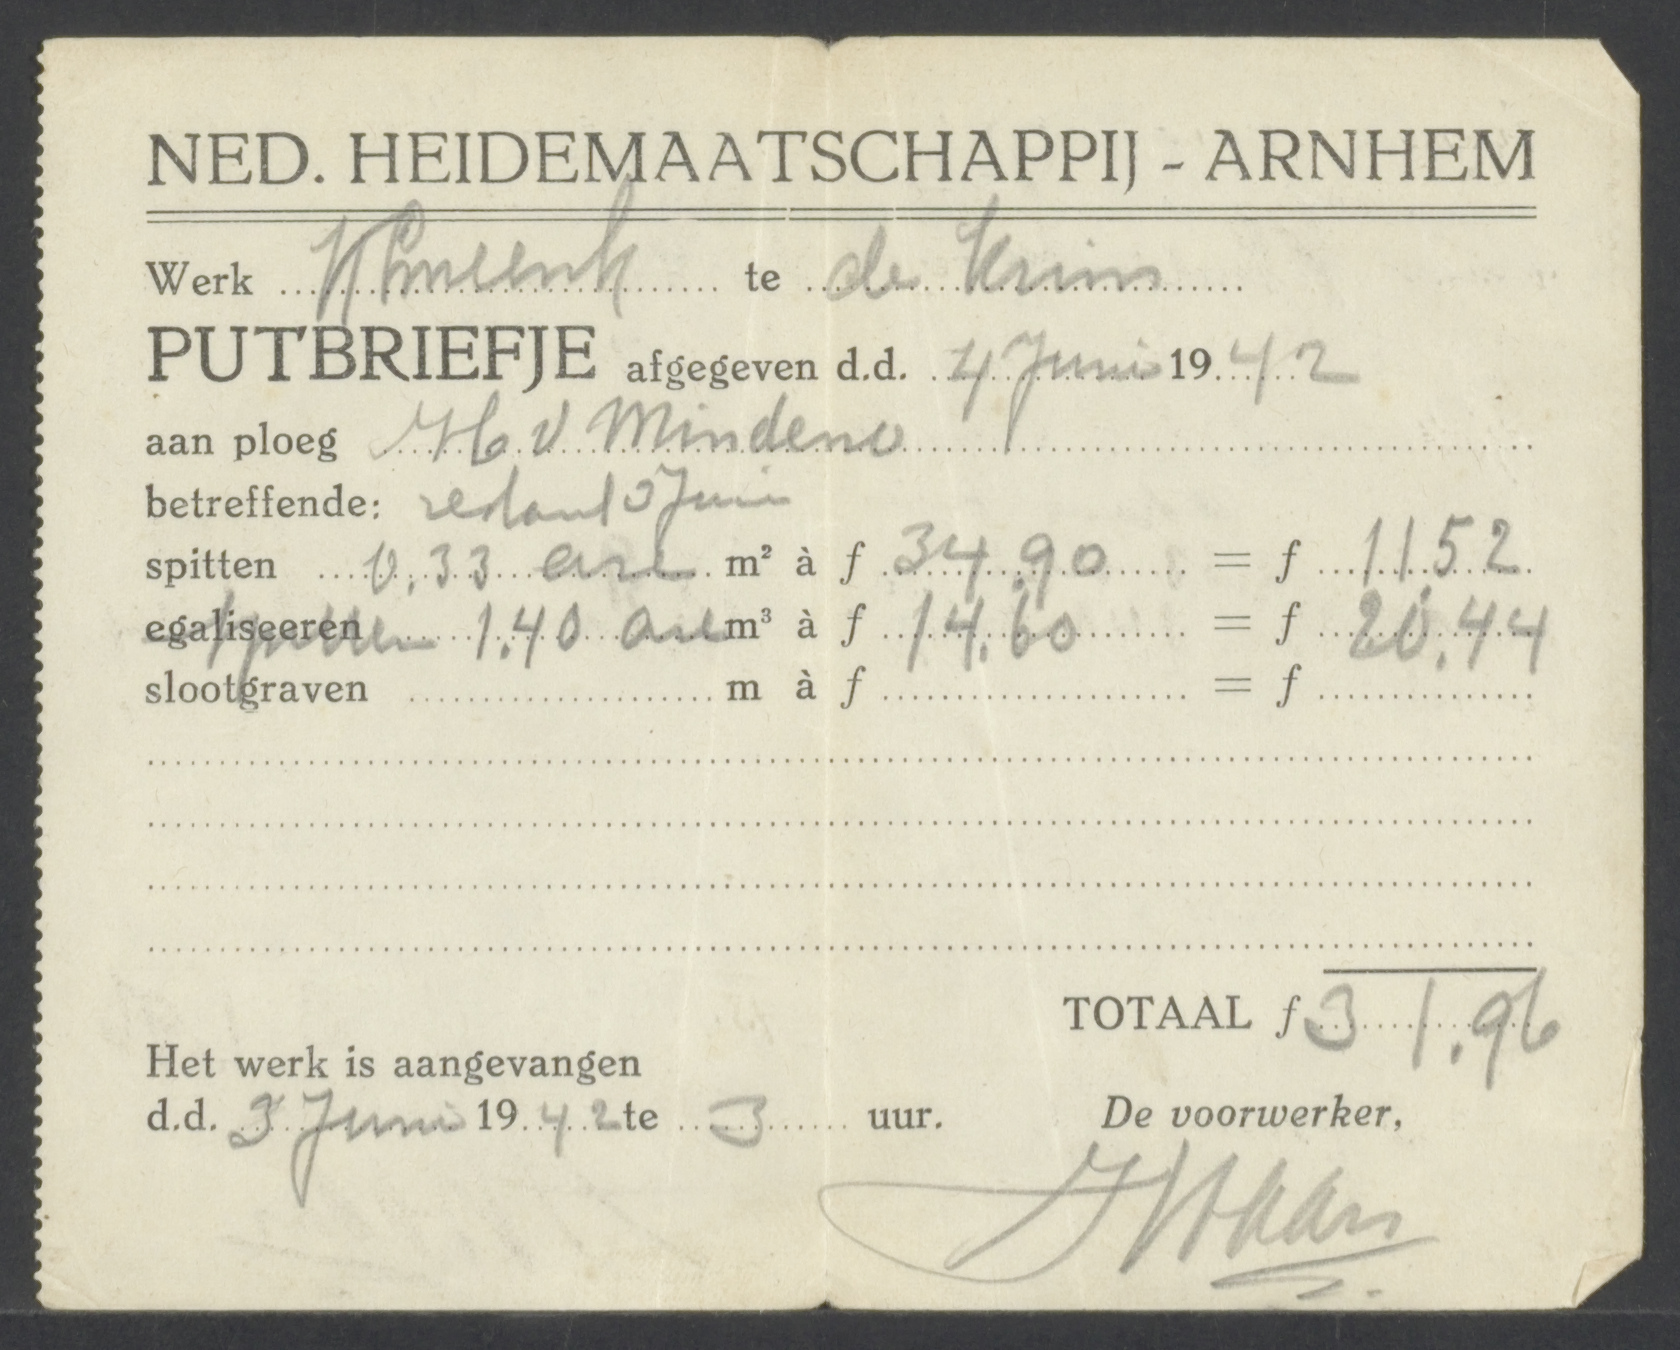 NED. HEIDEMAATSCHAPPIJ - ARNHEM
Werk te de Krim
PUTBRIEFJE afgegeven d.d. 4 Juni 1942
aan ploeg H v Minden
betreffende: 3 Juni
spitten 0,33 are m² à f 34,90 = f 11,52
egaliseeren spitten 1.40 are m³ à f 14.60 = f 20,44
slootgraven m à f = f
TOTAAL f 31,96
Het werk is aangevangen
d.d. 3 Juni 1942 te 3 uur. De voorwerker,